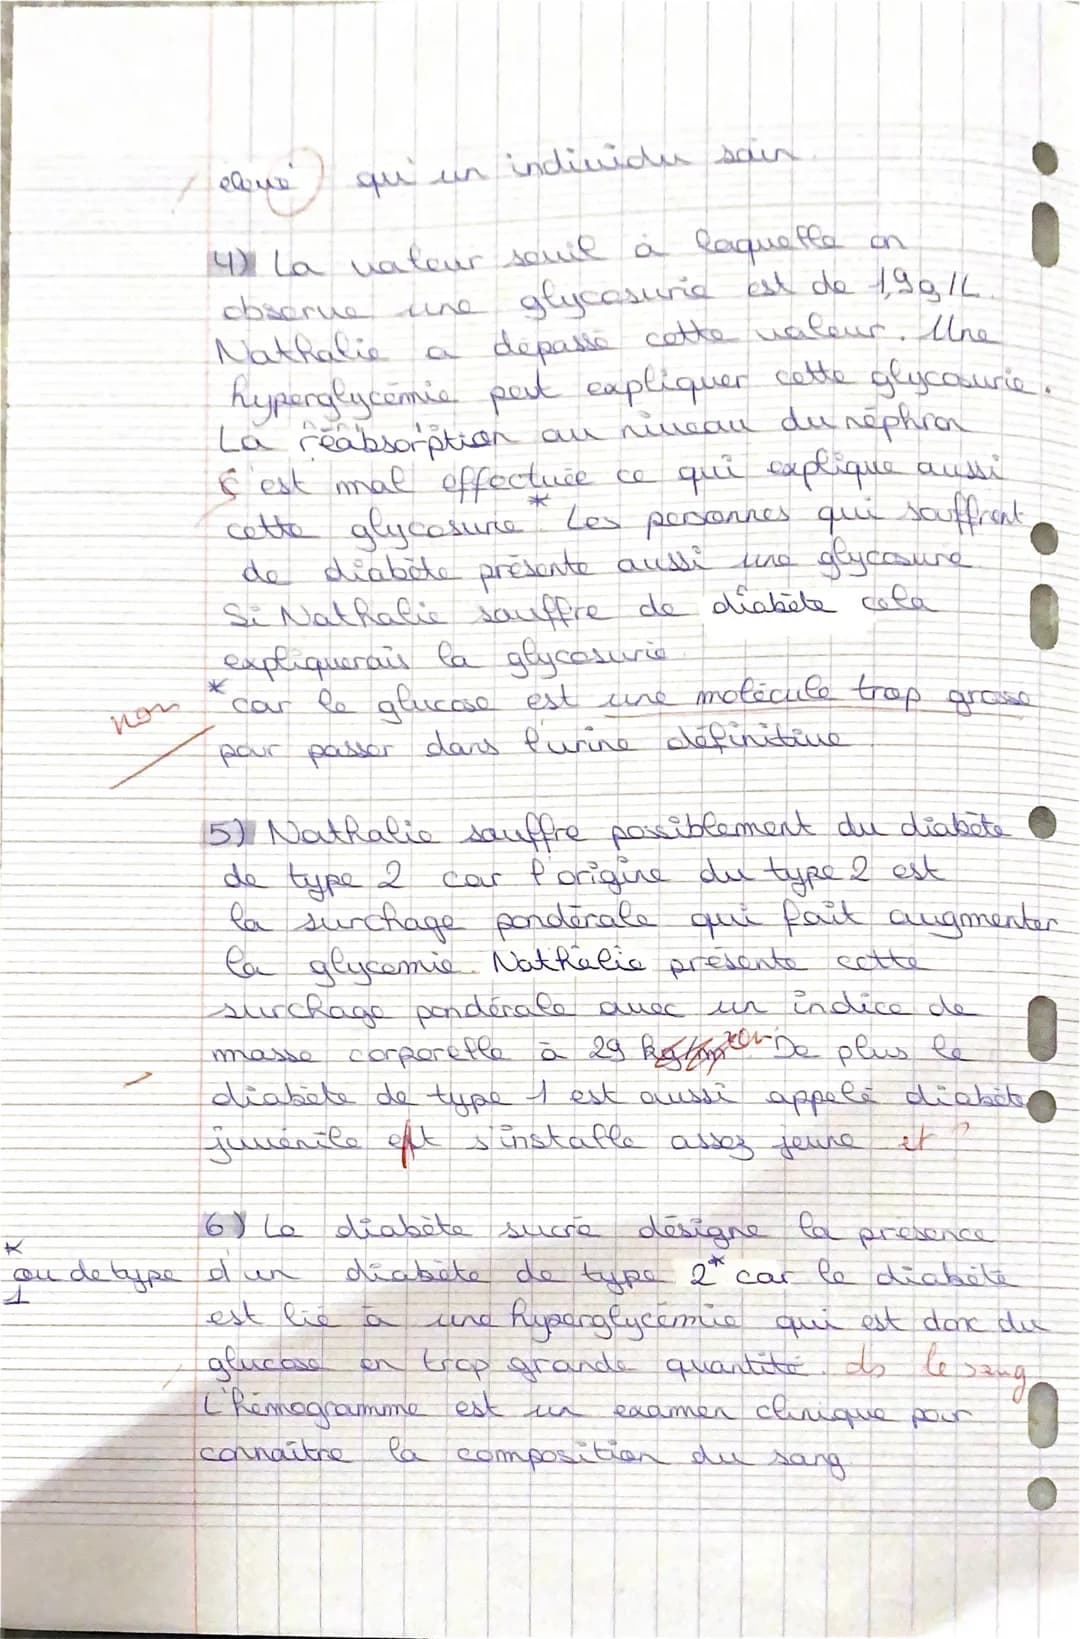 élevé qu'un individu sain.
4) La valeur seuil à laquelle on
observe une glycosurie est de 1,9g/L.
Nathalie a dépassé cette valeur. Une
hyperglycémie peut expliquer cette glycosurie.
La réabsorption au niveau du néphron
s'est mal effectuée ce qui explique aussi
cette glycosurie* Les personnes qui souffrent
de diabète présente aussi une glycosurie
Si Nathalie souffre de diabète cela
expliquerais la glycosurie
*car le glucose est une molécule trop grosse
non
pour passer dans l'urine définitive
5) Nathalie souffre possiblement du diabète
de type 2 car l'origine du type 2 est
la surchage pondérale qui fait augmenter
la glycemie. Nathalie présente cette
surchage pondérale avec un indice de
masse corporelle à 29 De plus le
diabète de type 1 est aussi appelé diabète
juvénile et s'installe assez jeune et ?
6) Le diabète sucré désigne la présence
d'un diabète de type 2* car le diabète
* ou de type 1
est lié à une hyperglycémie qui est donc du
glucose en trop grande quantité. ds le sang
L'hémogramme est un examen clinique pour
connaître la composition du sang